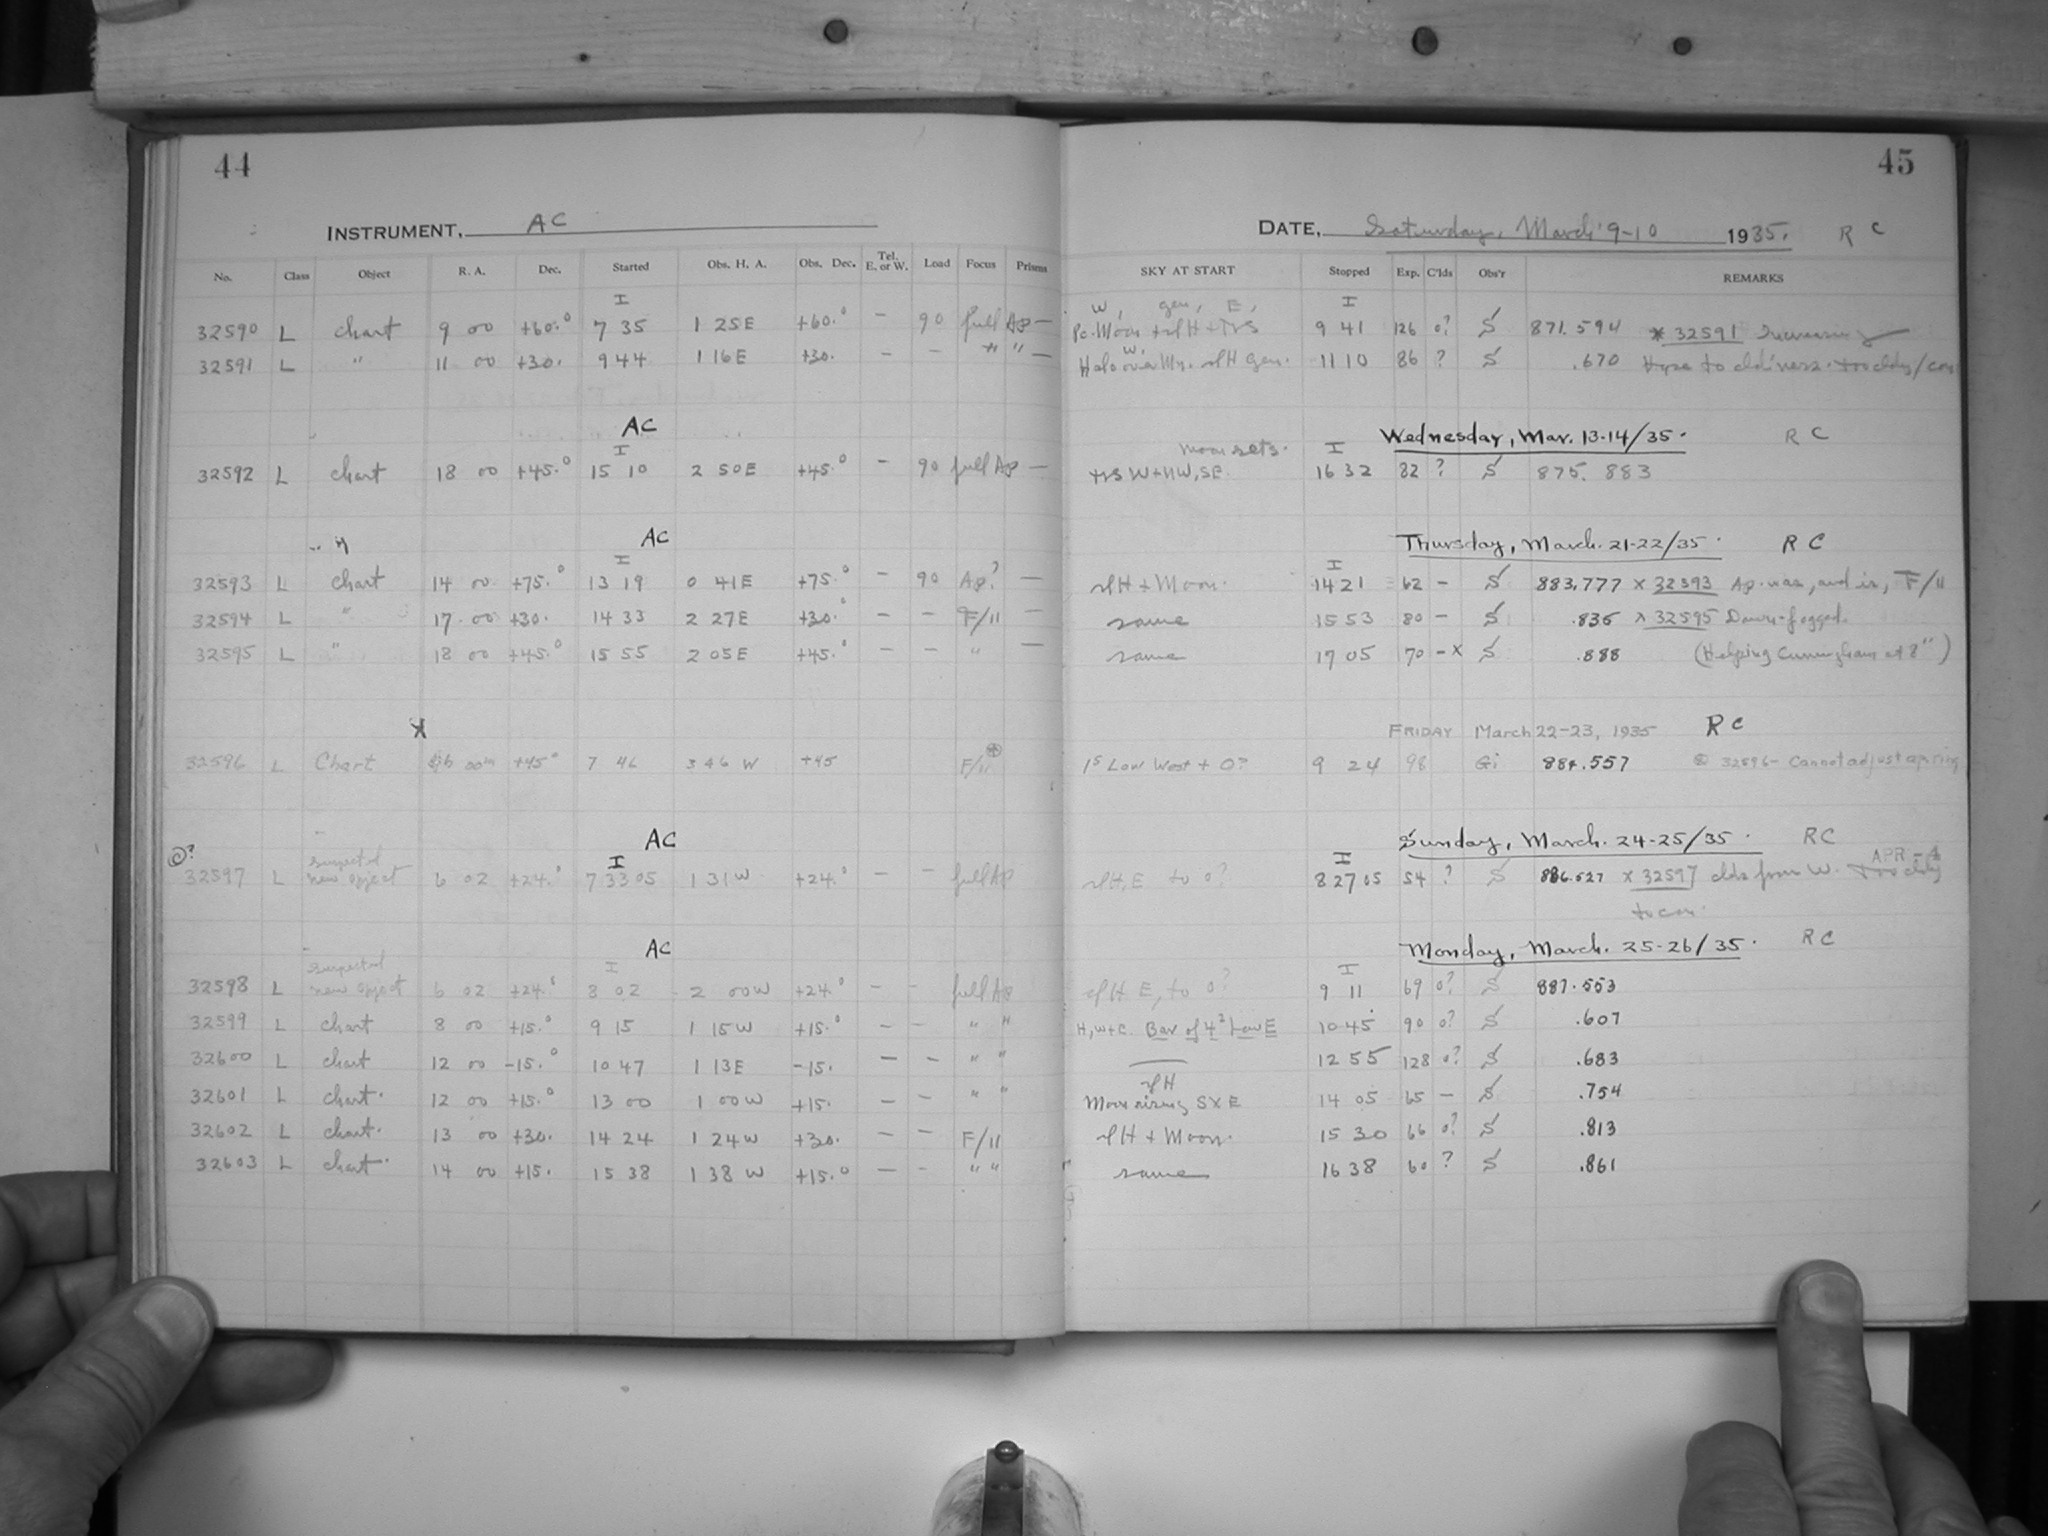 44
INSTRUMENT, AC
No. Class Object R. A. Dec. Started Obs. H. A. Obs. Dec. Tel. E. or W. Load Focus Prisms
I
32590 L chart 9 00 +60.° 7 35 1 25E +60.° – 90 full Ap –
32591 L " 11 00 +30. 9 44 1 16E +30. – – " " –
AC
I
32592 L chart 18 00 +45.° 15 10 2 50E +45.° – 90 full Ap –
AC
I
32593 L chart 14 00 +75.° 13 19 0 41E +75.° – 90 Ap.? –
32594 L " 17 00 +30. 14 33 2 27E +30.° – – F/11 –
32595 L " 18 00 +45.° 15 55 2 05E +45.° – – " –
32596 L Chart 00 +45° 7 46 3 46 W +45 F/11
AC
I
32597 L suspected new object 6 02 +24.° 7 33 05 1 31W +24.° – – full Ap
AC
I
32598 L suspected new object 6 02 +24.° 8 02 2 00W +24.° – – full Ap
32599 L chart 8 00 +15.° 9 15 1 15W +15.° – – " "
32600 L chart 12 00 -15.° 10 47 1 13E -15. – – " "
32601 L chart. 12 00 +15.° 13 00 1 00W +15. – – " "
32602 L chart. 13 00 +30. 14 24 1 24W +30. – – F/11
32603 L chart. 14 00 +15. 15 38 1 38 W +15.° – – " "
45
DATE, Saturday, March 9-10 1935. R C
SKY AT START Stopped Exp. C'lds Obs'r REMARKS
W, gen, E, I
Moon + H + 9 41 126 0? S 871.594 * 32591 Increasing
W.
Halo over Mn. H gen. 11 10 86 ? S .670 to
Wednesday, Mar. 13-14/35. R C
moon sets. I
W + NW, SE. 16 32 82 ? S 875. 883
Thursday, March. 21-22/35. R C
I
H + Moon. 14 21 62 – S 883.777 × 32593 Ap. was, and is, F/11
same 15 53 80 – S .835 × 32595 Dawn-fogged.
same 17 05 70 – × S .888 (Helping Cunningham at 8")
FRIDAY March 22-23, 1935 R C
1s Low West + 0? 9 24 98 Gi 884.557 32596 – Cannot adjust
Sunday, March. 24-25/35. RC
APR – A
I
H, E to 0? 8 27 05 54 ? S 886.527 × 32597 clds from W. too cldy
to con.
Monday, March. 25-26/35. R C
I
H E, to 0? 9 11 69 0? S 887.553
H, W+C. Bar of 4² Low E 10 45 90 0? S .607
12 55 128 0? S .683
H
Moon rising S×E 14 05 65 – S .754
H + Moon. 15 30 66 0? S .813
same 16 38 60 ? S .861